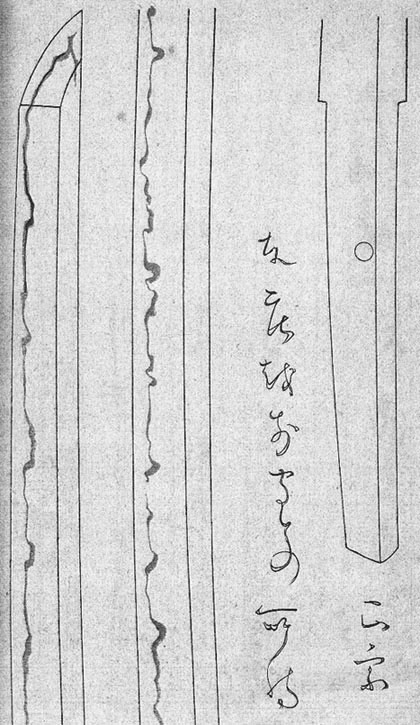 正宗
本庄越前守との所持